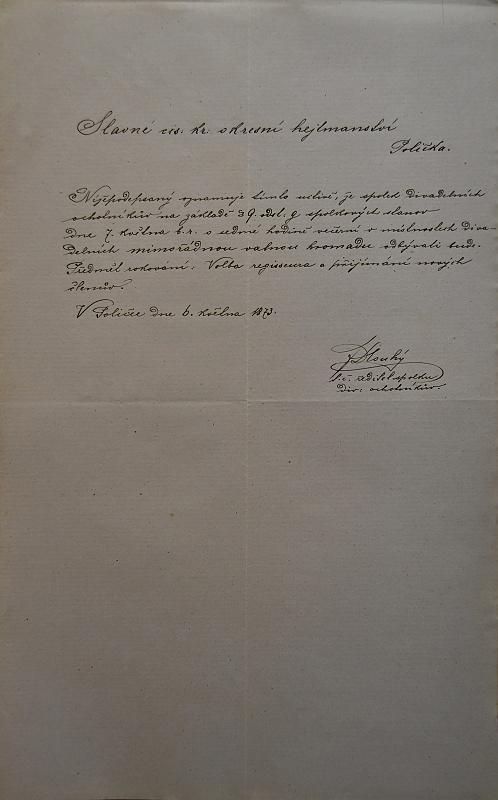 Slavné cis. kr. okresní hejtmanství
Polička.
Nížepodepsaný oznamuje tímto uctivě, že spolek divadelních
ochotníkův na základě § 9. odst. g spolkových stanov
dne 7. května t. r. o sedmé hodině večerní v místnostech Diva-
delních mimořádnou valnou hromadu odbývati bude.
Předmět rokování: Volba regisseura a přijímání nových
členův.
V Poličce dne 6. května 1873.
Dlouhý
t. č. ředitel spolku
div. ochotníkův.